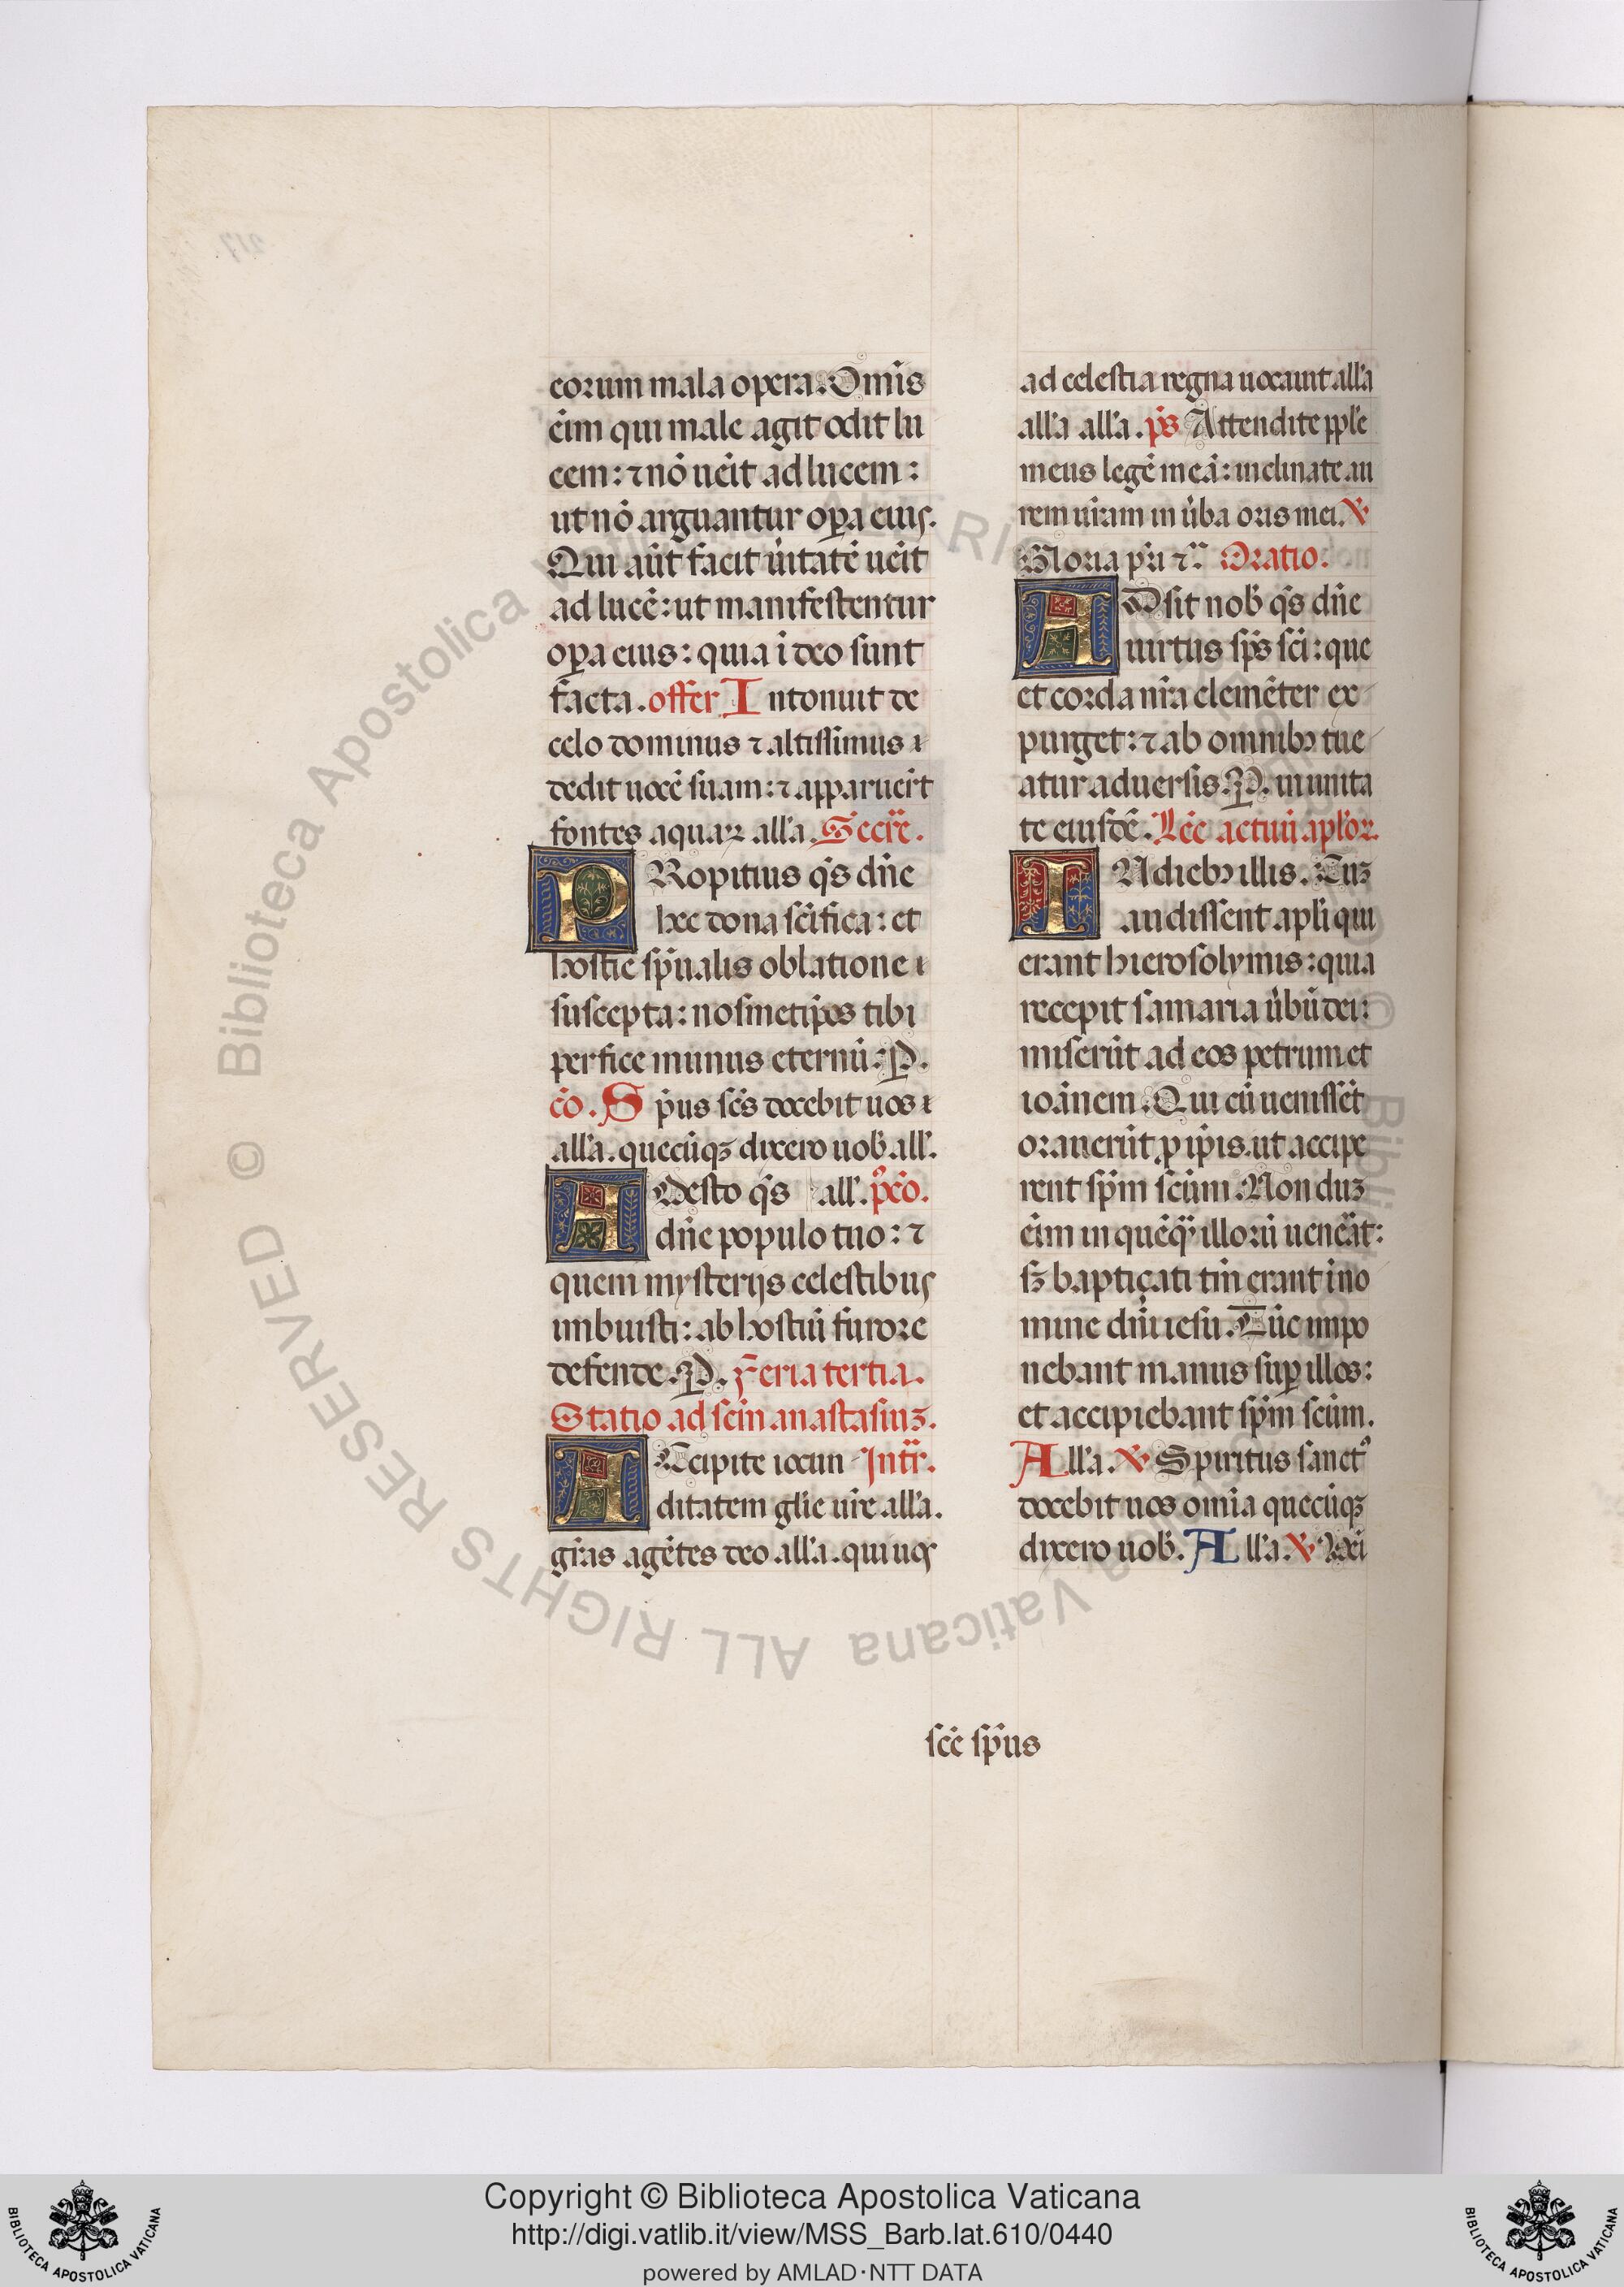 eorum mala opera. Om̄is
em̄ qui male agit odit lu
cem: ⁊ nō ueīt ad lucem:
ut nō arguantur oꝑa eius.
Qui aūt facit ūitatē ueīt
ad lucē: ut manifestentur
oꝑa eius: quia ī deo sunt
facta. offer Intonuit de
celo dominus ⁊ altissimus
dedit uocē suam: ⁊ apparuerūt
fontes aquaꝝ all'a. Secre.
PRopitius q̄s dn̄e
hec dona sc̄ifica: et
hostie sp̄ualis oblatione
suscepta: nosmetip̄os tibi
perfice munus eternū. P.
cō. Sp̄us sc̄s docebit uos
all'a. quecūqꝫ dixero uob̄ all'.
ADesto q̄s all'. p̄cō.
dn̄e populo tuo: ⁊
quem mysterijs celestibus
imbuisti: ab hostiū furore
defende. P. Feria tertia.
Statio ad sc̄m anastasiuꝫ.
ACcipite iocun Intr̄.
ditatem gl̄ie ur̄e all'a.
gr̄as agētes deo all'a. qui uos
ad celestia regna uocauit all'a
all'a all'a. p̄s Attendite pple
meus legē meā: inclinate au
rem ur̄am in ūba oris mei. ℣
Gloria pr̄i ⁊ Oratio.
ADsit nob̄ q̄s dn̄e
uirtus sp̄s sc̄i: que
et corda nr̄a clemēter ex
purget: ⁊ ab omnibꝫ tue
atur aduersis. P. in unita
te eiusdē. Lec̄ actuū apl'oꝝ.
IN diebꝫ illis. Cuꝫ
audissent apl'i qui
erant hierosolymis: quia
recepit samaria ūbū dei:
miserūt ad eos petrum et
ioānem. Qui cū uenissēt
orauerūt ꝓ ip̄is. ut accipe
rent sp̄m sc̄um. Non duꝫ
eīm in quēq̄ illorū uenēat:
sꝫ bapticati tm̄ erant ī no
mine dn̄i iesu. Tūc impo
nebant manus suꝑ illos:
et accipiebant sp̄m sc̄um.
All'a. ℣ Spiritus sanctꝰ
docebit uos omīa quecūqꝫ
dixero uob̄. All'a. ℣ Uēi
sc̄e sp̄us
© Biblioteca Apostolica Vaticana ALL RIGHTS RESERVED
Copyright © Biblioteca Apostolica Vaticana
http://digi.vatlib.it/view/MSS_Barb.lat.610/0440
powered by AMLAD·NTT DATA
BIBLIOTECA APOSTOLICA VATICANA
BIBLIOTECA APOSTOLICA VATICANA